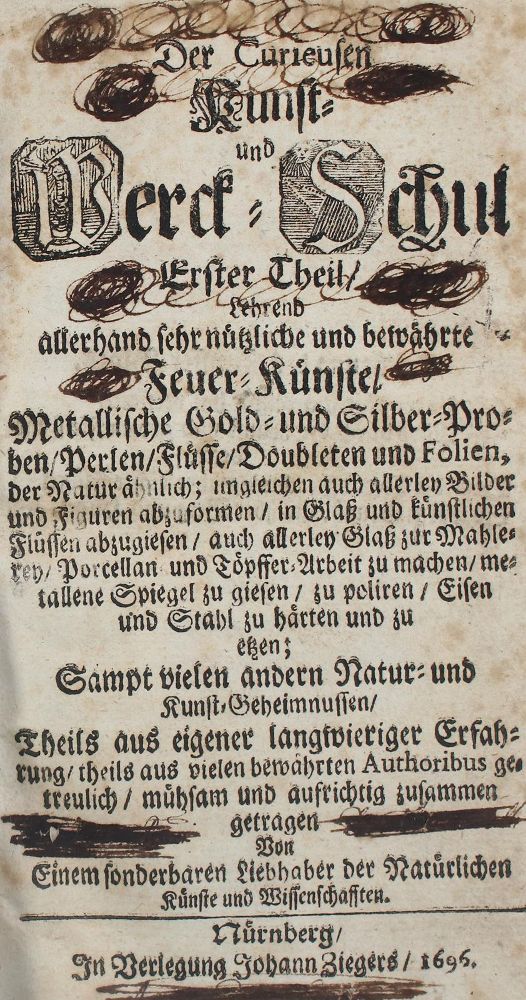 Der Curieusen
Kunst-
und
Werck-Schul
Erster Theil/
Lehrend
allerhand sehr nützliche und bewährte
Feuer-Künste/
Metallische Gold- und Silber-Pro-
ben/Perlen/Flüsse/Doubleten und Folien,
der Natur ähnlich; ungleichen auch allerley Bilder
und Figuren abzuformen/ in Glaß und künstlichen
Flüssen abzugiesen/ auch allerley Glaß zur Mahle-
rey/ Porcellan und Töpffer-Arbeit zu machen/ me-
tallene Spiegel zu giesen/ zu poliren/ Eisen
und Stahl zu härten und zu
etzen;
Sampt vielen andern Natur- und
Kunst-Geheimnussen/
Theils aus eigener langwieriger Erfah-
rung/ theils aus vielen bewährten Authoribus ge-
treulich/ mühsam und aufrichtig zusammen
getragen
Von
Einem sonderbaren Liebhaber der Natürlichen
Künste und Wissenschafften.
Nürnberg/
In Verlegung Johann Ziegers/ 1696.